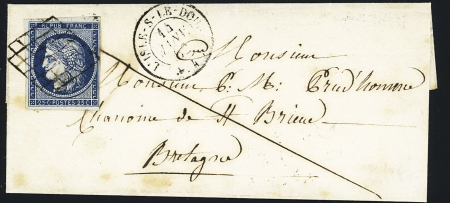 REPUB FRANC
25 C POSTES 25 C
L'ISLE-S-LE-DOUBS
Monsieur
Monsieur P. M. Prud'homme
Chanoine de St Brieuc
Bretagne